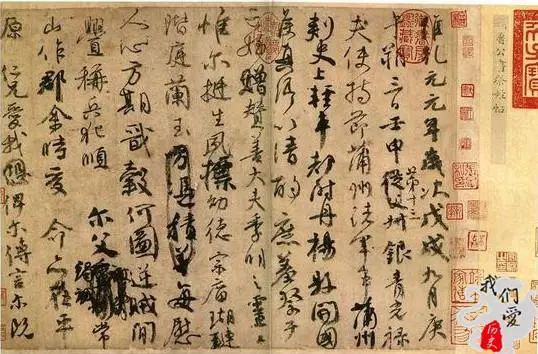 魯公書祭姪帖
維乾元元年歲次戊戌九月庚
午朔三日壬申第十三從父叔銀青光祿
夫使持節蒲州諸軍事蒲州
刺史上輕車都尉丹楊縣開國
侯真卿以清酌庶羞祭于
亡姪贈贊善大夫季明之靈曰
惟爾挺生夙標幼德宗廟瑚璉
階庭蘭玉方憑積善每慰
人心方期戩穀何圖逆賊間
釁稱兵犯順爾父竭誠常
山作郡余時受命亦在平
原仁兄愛我俾爾傳言爾既
我們愛
历史